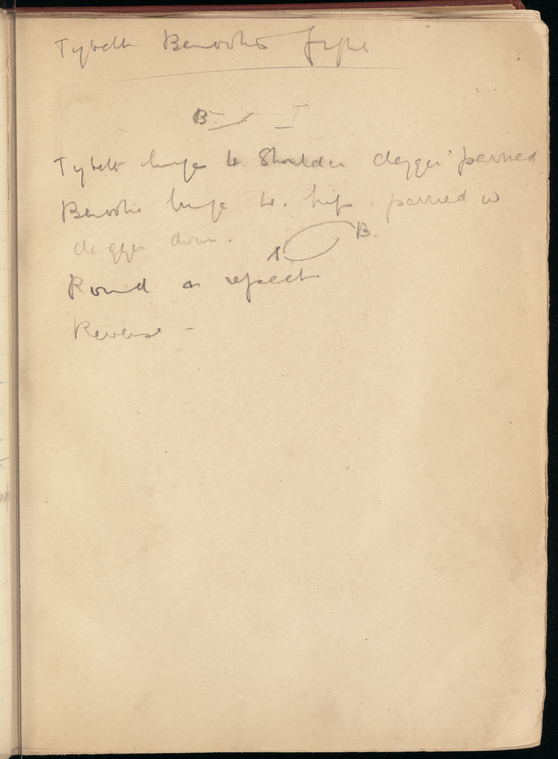 Tybalt Benvolio fight
B T
Tybalt lunge to shoulder dagger parried
Benvolio lunge to hip. parried w
dagger down.
T B.
Round & repeat
Reverse -